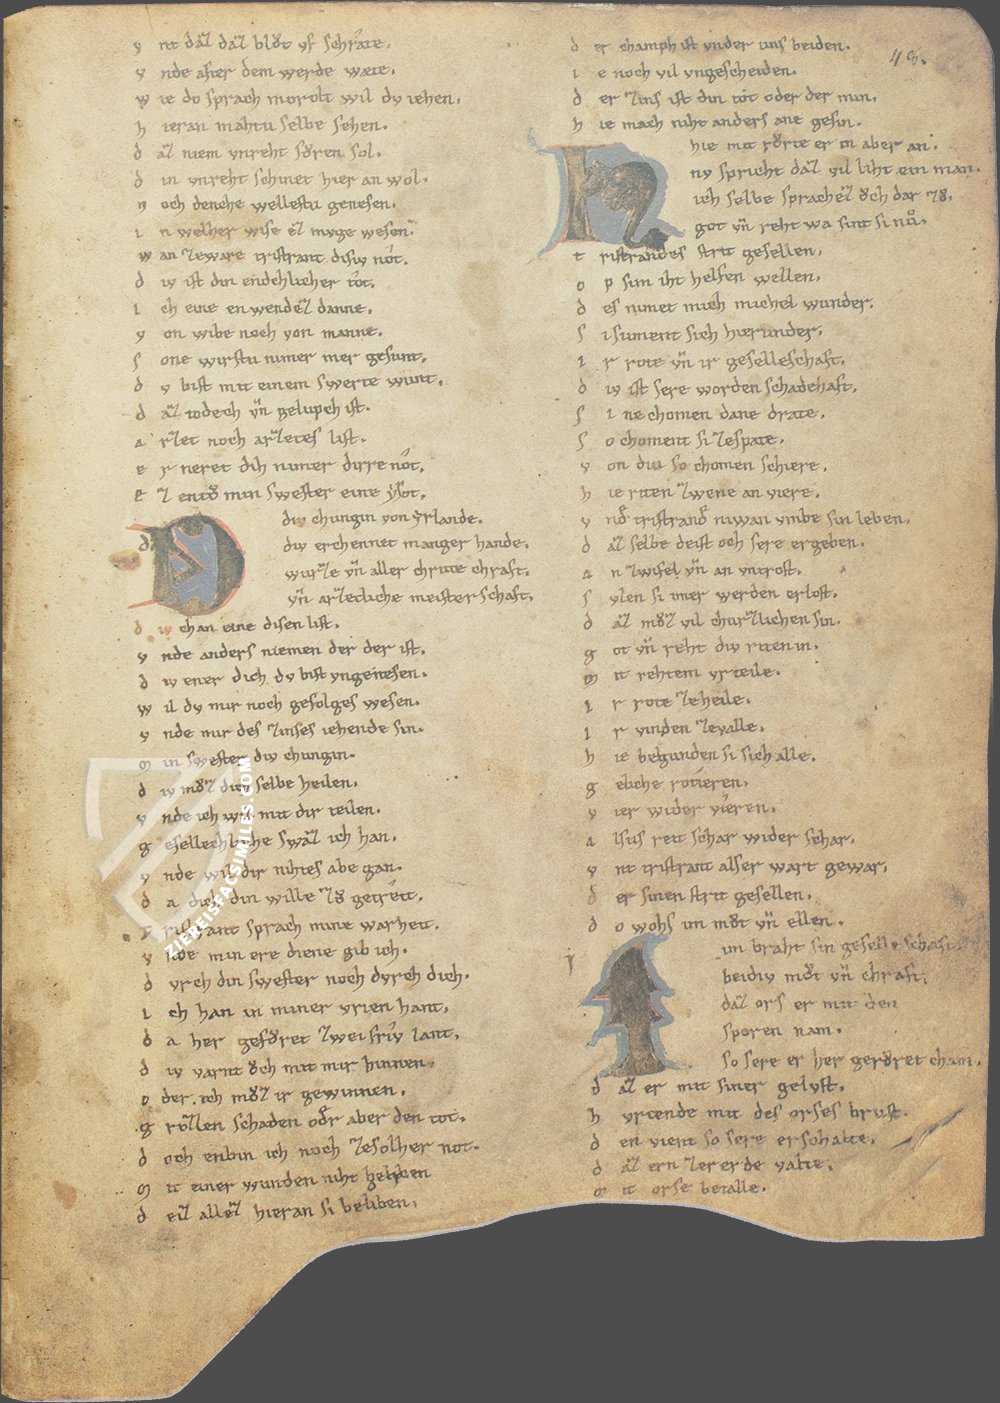 v nt daz daz blůt vf schrâte.
v nde after dem werde wæte.
w ie do sprach morolt wil dv iehen.
h ieran mahtu selbe sehen.
d az niem vnreht fůren sol.
d in vnreht schinet hier an wol.
n och denche wellestu genesen.
i n welher wise ez mvge wesen.
w an zeware tristrant disiv nôt.
d iv ist din endchlicher tôt.
i ch eine en wendez danne.
v on wibe noch von manne.
s one wirstu nimer mer gesunt.
d v bist mit einem swerte wunt.
d az todech vn̄ gelupch ist.
a rzet noch arzetes list.
e r neret dih nimer dirre nôt.
e z entů min swester eine ẏsot.
div chungin von ẏrlande.
div erchennet manger hande.
wurze vn̄ aller chrute chraft.
vn̄ arzetliche meisterschaft.
d iv chan eine disen list.
v nde anders niemen der der ist.
d iv ener dich dv bist vngenesen.
w il dv mir noch gefolges wesen.
v nde mir des zinses iehende sin.
m in swester div chungin.
d iv můz dich selbe heilen.
v nde ich wil mit dir teilen.
g esellechliche swaz ich han.
v nde wil dir nihtes abe gan.
d a dich din wille zů getreit.
t ristrant sprach mine warheit.
v nde min ere diene gib ich.
d vrch din swester noch dvrch dich.
i ch han in miner vrien hant.
d a her gefůret zwei friv lant.
d iv varnt ůch mit mir hinnen.
o der ich můz ir gewinnen.
g rozzen schaden od̄r aber den tot.
d och enbin ich noch zesolher not.
m it einer wunden niht beliben
d eiz allez hieran si beliben.
48.
d er champh ist vnder uns beiden.
i e noch vil vngescheiden.
d er zins ist din tôt oder der min.
h ie mach niht anders ane gesin.
N hie mit růrte er in aber an.
nv spricht daz vil liht ein man.
ich selbe sprachez ůch dar zů.
got vn̄ reht wa sint si nů.
t ristrandes strit gesellen.
o p sin iht helfen wellen.
d es nimet mich michel wunder.
s i sument sich hierunder.
i r rote vn̄ ir geselleschaft.
d iv ist sere worden schadehaft.
s i ne chomen dane drate.
s o choment si zespate.
v on div so chomen schiere.
h ie riten zwene an viere.
v nd̄ tristrand̄ niwan vmbe sin leben.
d az selbe deist och sere ergeben.
a n zwisel vn̄ an vntrost.
s vlen si imer werden erlost.
d az můz vil churzlichen sin.
g ot vn̄ reht div riten in.
m it rehtem vrteile.
i r rote zeheile.
i r vinden zevalle.
h ie begunden si sich alle.
g eliche rotieren.
v ier wider vieren.
a lsus reit schar wider schar.
v nt tristrant alser wart gewar.
d er sinen strit gesellen.
d o wohs im můt vn̄ ellen.
im braht sin geselleschaft.
beidiv můt vn̄ chraft.
daz ors er mit den
sporen nam.
so sere er her gerůret cham.
d az er mit siner gelvst.
h vrtende mit des orses brust.
d en vient so sere erschalte.
d az ern zer erde valte.
m it orse betalle.
ZIEREISFACSIMILES.COM